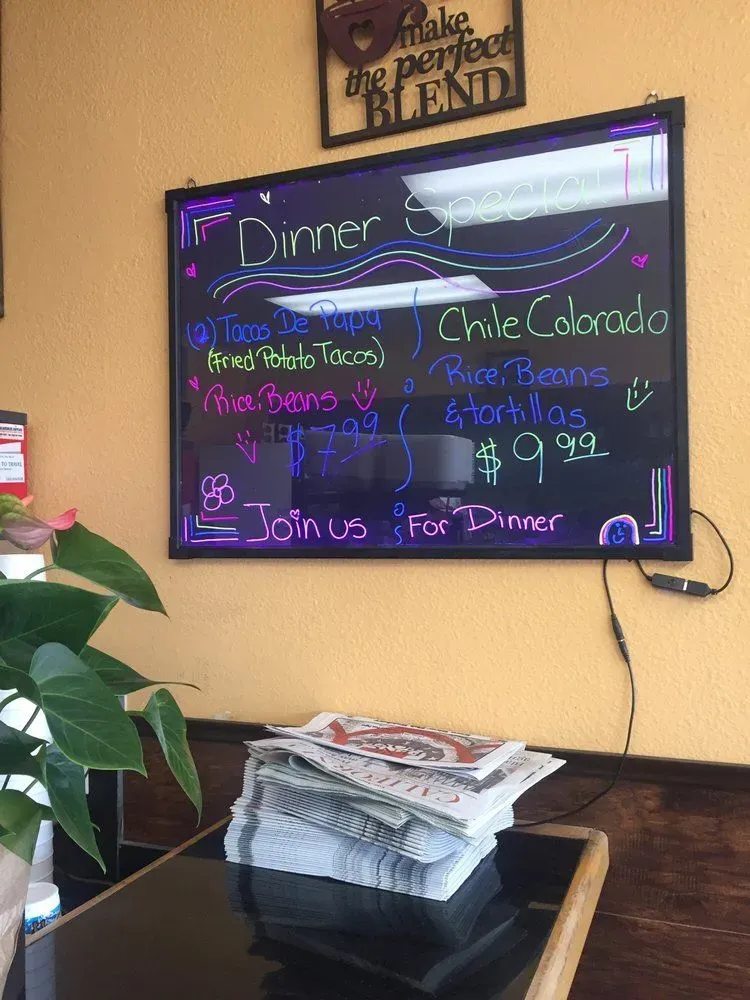 make
the perfect
BLEND
Dinner Special
(2) Tacos De Papa
(Fried Potato Tacos)
Rice, Beans
$7.99
Chile Colorado
Rice, Beans
& tortillas
$9.99
Join us For Dinner
TO TRAVEL